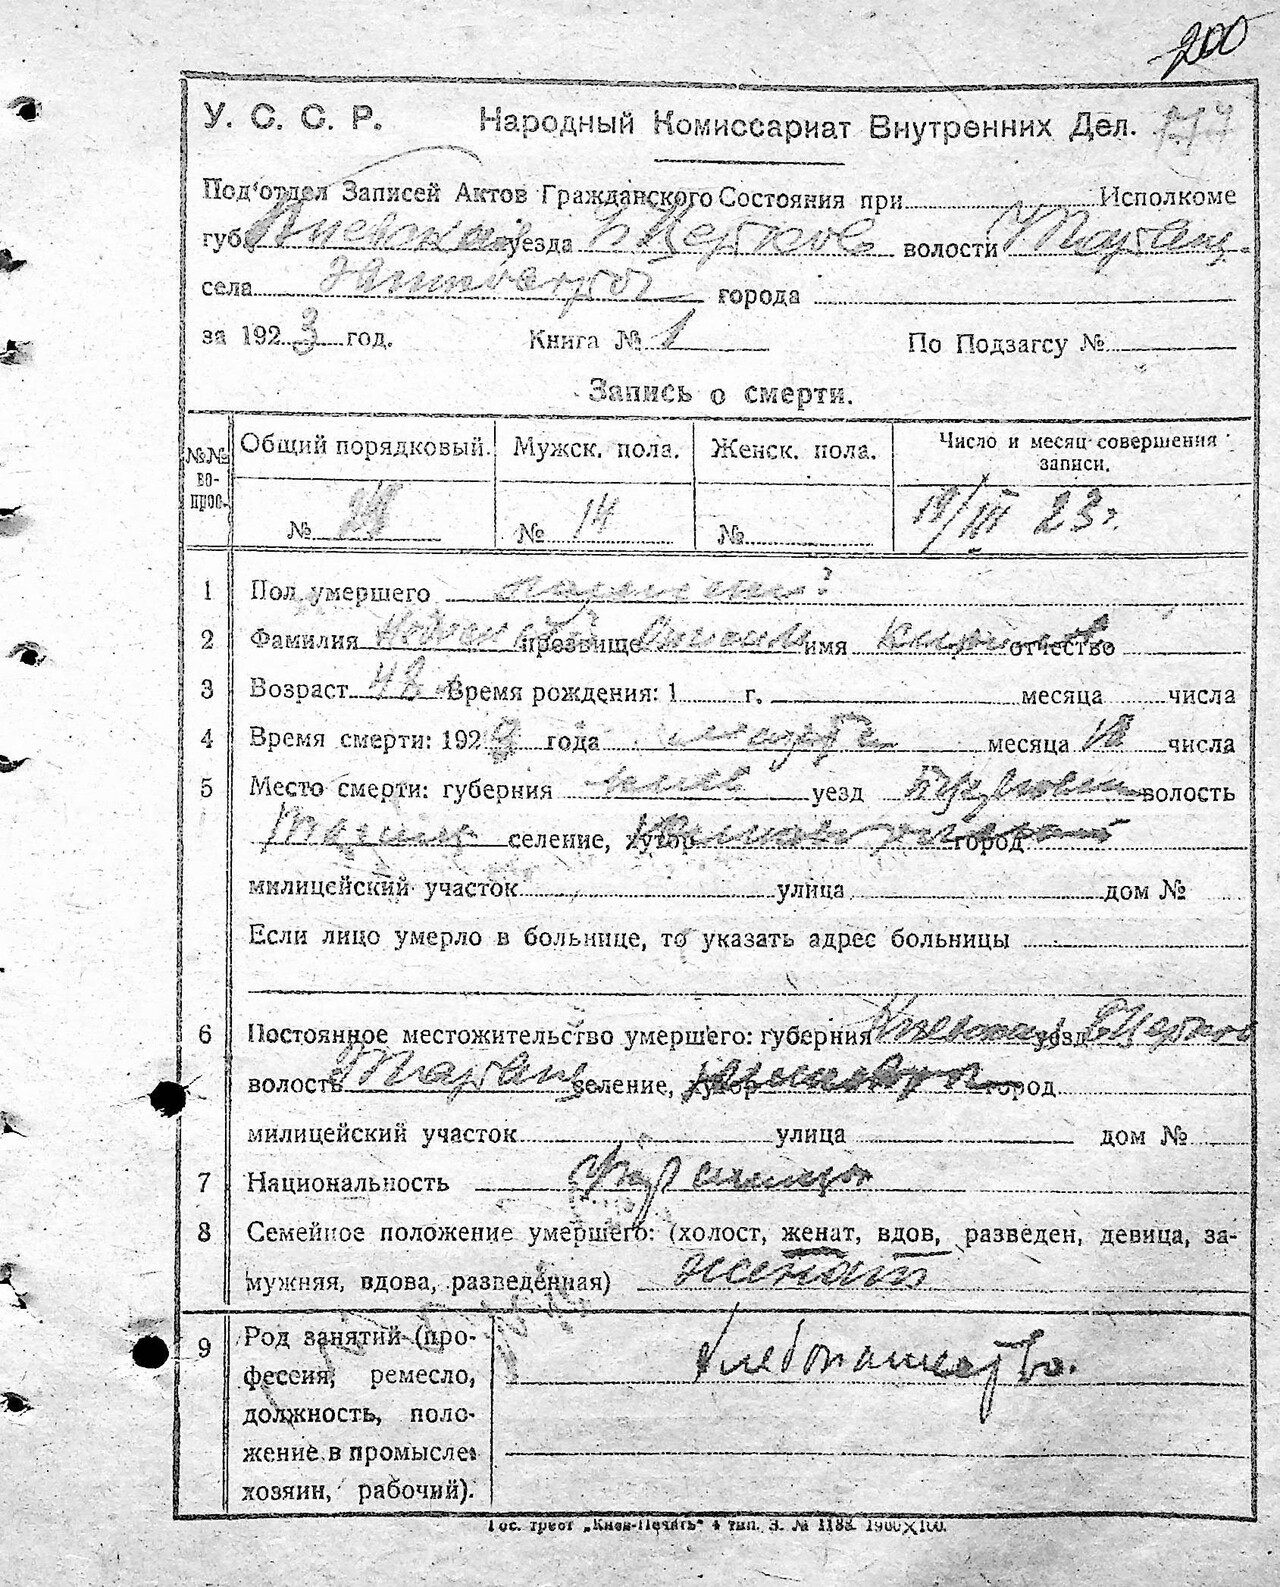 200
У. С. С. Р. Народный Комиссариат Внутренних Дел.
Под'отдел Записей Актов Гражданского Состояния при Исполкоме
губ. Киевская уезда Б Церков волости Таращ.
села города
за 1923 год. Книга № 1 По Подзагсу №
Запись о смерти.
№№ во- прос. Общий порядковый. Мужск. пола. Женск. пола. Число и месяц совершения записи.
№ 28 № 14 № 19/III 23 г.
1 Пол умершего
2 Фамилия прозвище имя отчество
3 Возраст 48 Время рождения: 1 г. месяца числа
4 Время смерти: 1923 года марта месяца 18 числа
5 Место смерти: губерния Киев уезд волость
Таращ селение, хутор город
милицейский участок улица дом №
Если лицо умерло в больнице, то указать адрес больницы
6 Постоянное местожительство умершего: губерния Киевская уезд Б Церков
волость Таращ селение, хутор город
милицейский участок улица дом №
7 Национальность украинец
8 Семейное положение умершего: (холост, женат, вдов, разведен, девица, за-
мужняя, вдова, разведенная) женат
9 Род занятий (про-
фессия, ремесло,
должность, поло-
жение в промысле:
хозяин, рабочий).
Хлебопашество.
Гос. трест „Киев-Печать" 4 тип. З. № 1188. 1900×100.